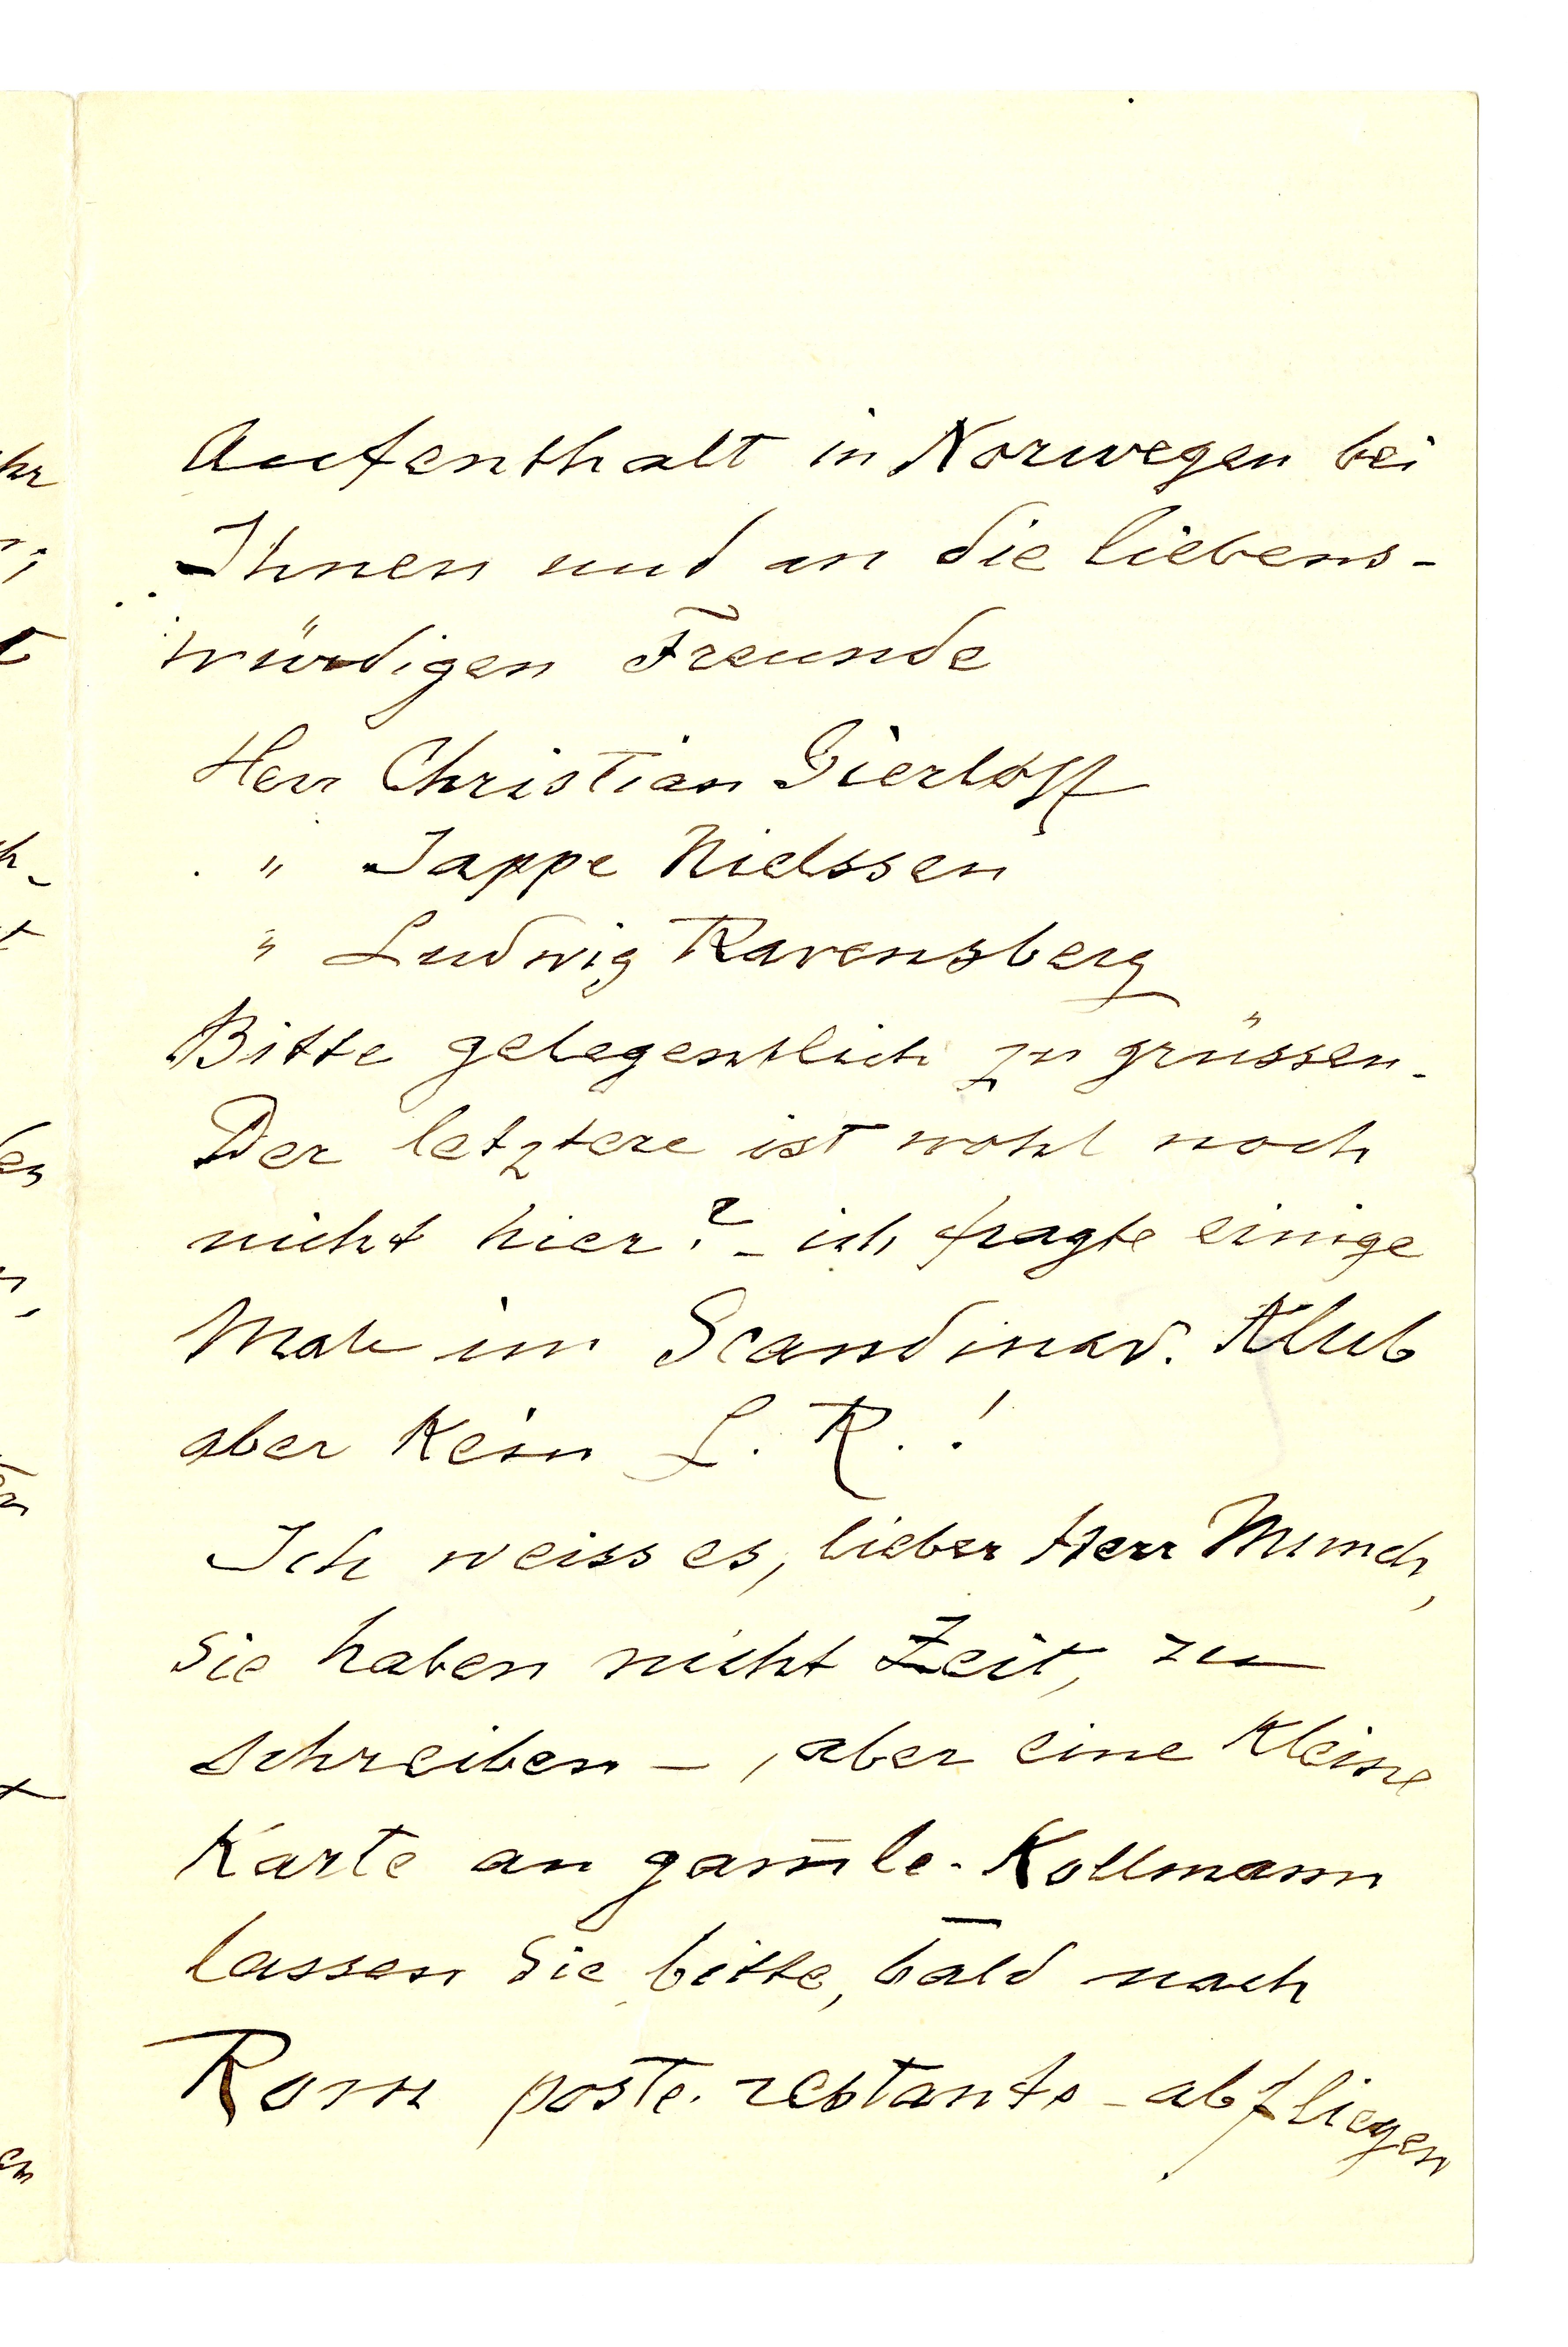 Aufenthalt in Norwegen bei
Ihnen und an die liebens-
würdigen Freunde
Herr Christian Gierløff
" Jappe Nielssen
" Ludwig Ravensberg
Bitte gelegentlich zu grüssen.
Der letztere ist wohl noch
nicht hier? – ich fragte einige
Male im Scandinav. Klub
aber kein L. R.!
Ich weiss es, lieber Herr Munch,
Sie haben nicht Zeit, zu
schreiben –, aber eine kleine
Karte an gam̅le Kollmann
lassen Sie bitte, bald nach
Rom poste. restante – abfliegen